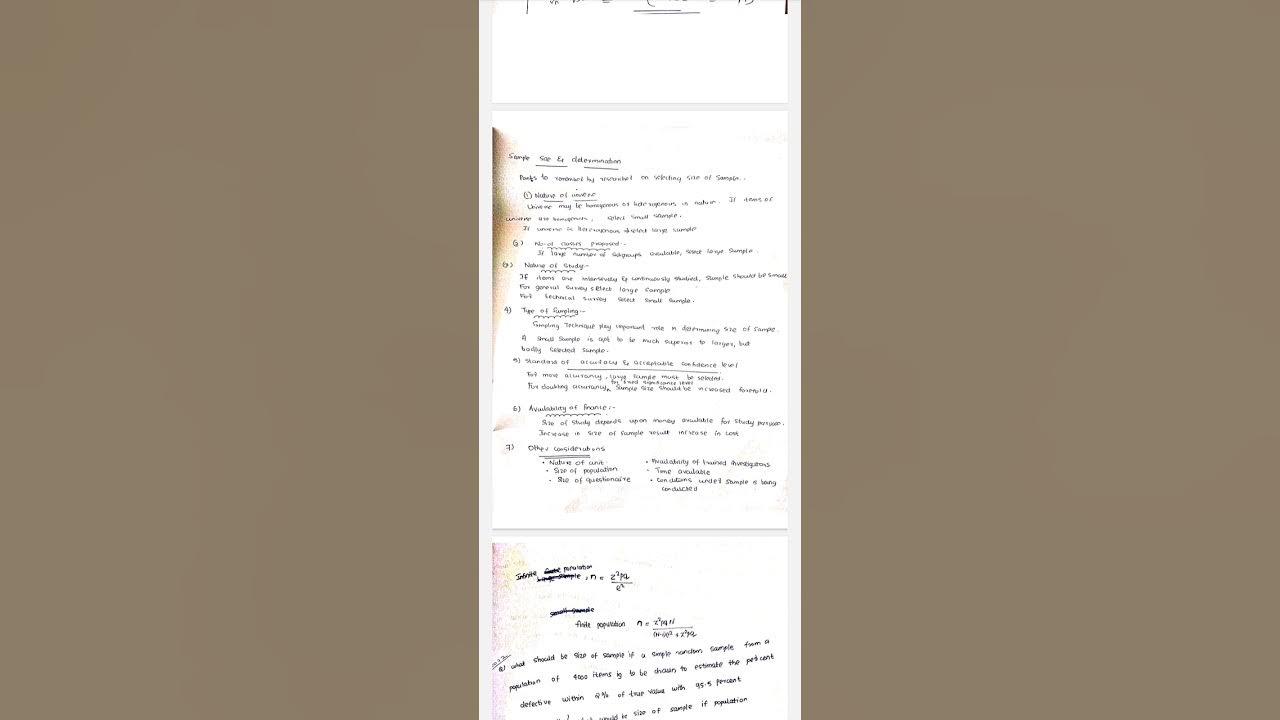 Sample size & determination
Points to remembed by researched on selecting size of Sample..
(1) Nature of universe
Universe may be homogenous or heterogenous in nature. If items of
universe are homogenous, select small sample.
If universe is heterogenous →select large sample
(2) No. of classes proposed:-
If large number of subgroups available, select large sample.
(3) Nature of Study:-
If items are intensively & continuously studied, Sample should be small
For general survey select large sample
For technical survey select small sample.
4) Type of Sampling:-
Sampling Technique play important role in determining size of sample.
A small sample is apt to be much superior to larger, but
badly selected sample.
5) Standard of accuracy & acceptable confidence level
For more accuracy, large sample must be selected.
for fixed significance level
For doubling accuracy, Sample size should be increased fourfold.
6) Availability of finance:-
Size of study depends upon money available for study purpose.
Increase in size of sample result increase in cost
7) Other considerations
• Nature of unit • Availability of trained investigators
• Size of population • Time available
• Size of questionaire • Conditions under sample is being
conducted
Infinite population
, n = z²pq
e²
small sample
finite population n = z²pqN
(N-1)e² + z²pq
Q) what should be size of sample if a simple random sample from a
population of 4000 items is to be drawn to estimate the percent
defective within 2% of true value with 95.5 percent
would be size of sample if population